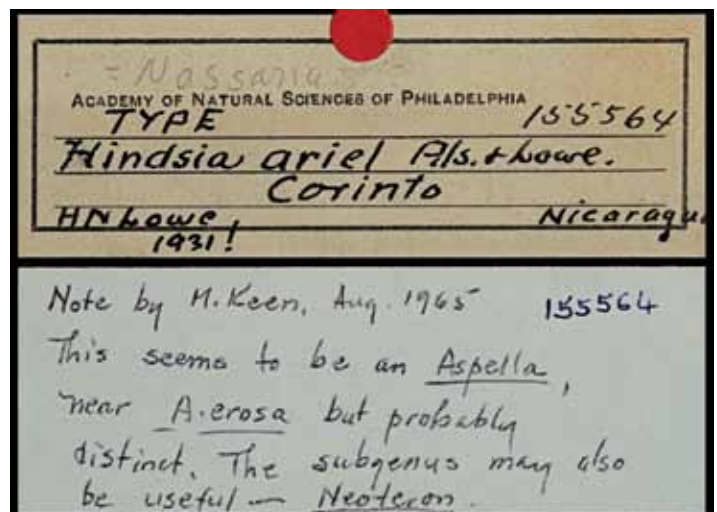 = Nassaria
ACADEMY OF NATURAL SCIENCES OF PHILADELPHIA
TYPE 155564
Hindsia ariel Pls. & Lowe.
Corinto
HN Lowe Nicaragu
1931!
Note by M. Keen, Aug. 1965 155564
This seems to be an Aspella,
near A. erosa but probably
distinct. The subgenus may also
be useful — Neoteron.